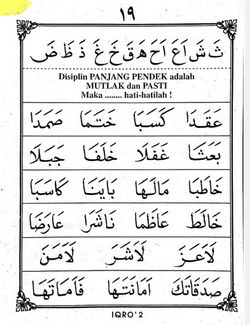 ١٩
ث ش أ ع أ ح ه ق خ غ ذ ظ ض
Disiplin PANJANG PENDEK adalah
MUTLAK dan PASTI
Maka ........ hati-hatilah !
عَقَدَا كَسَبَا خَتَمَا صَمَدَا
بَعَثَا غَفَلَا خَلَفَا جَبَلَا
خَاطَبَا مَالَهَا بَايَنَا كَاسَبَا
خَالَطَ عَاظَمَا نَاشَرَا عَارَضَا
لَاعَزَ لَاشَرَ لَامَنَ
صَدَقَاتَكَ اَمَانَتَهَا فَاَمَاتَهَا
IQRO' 2